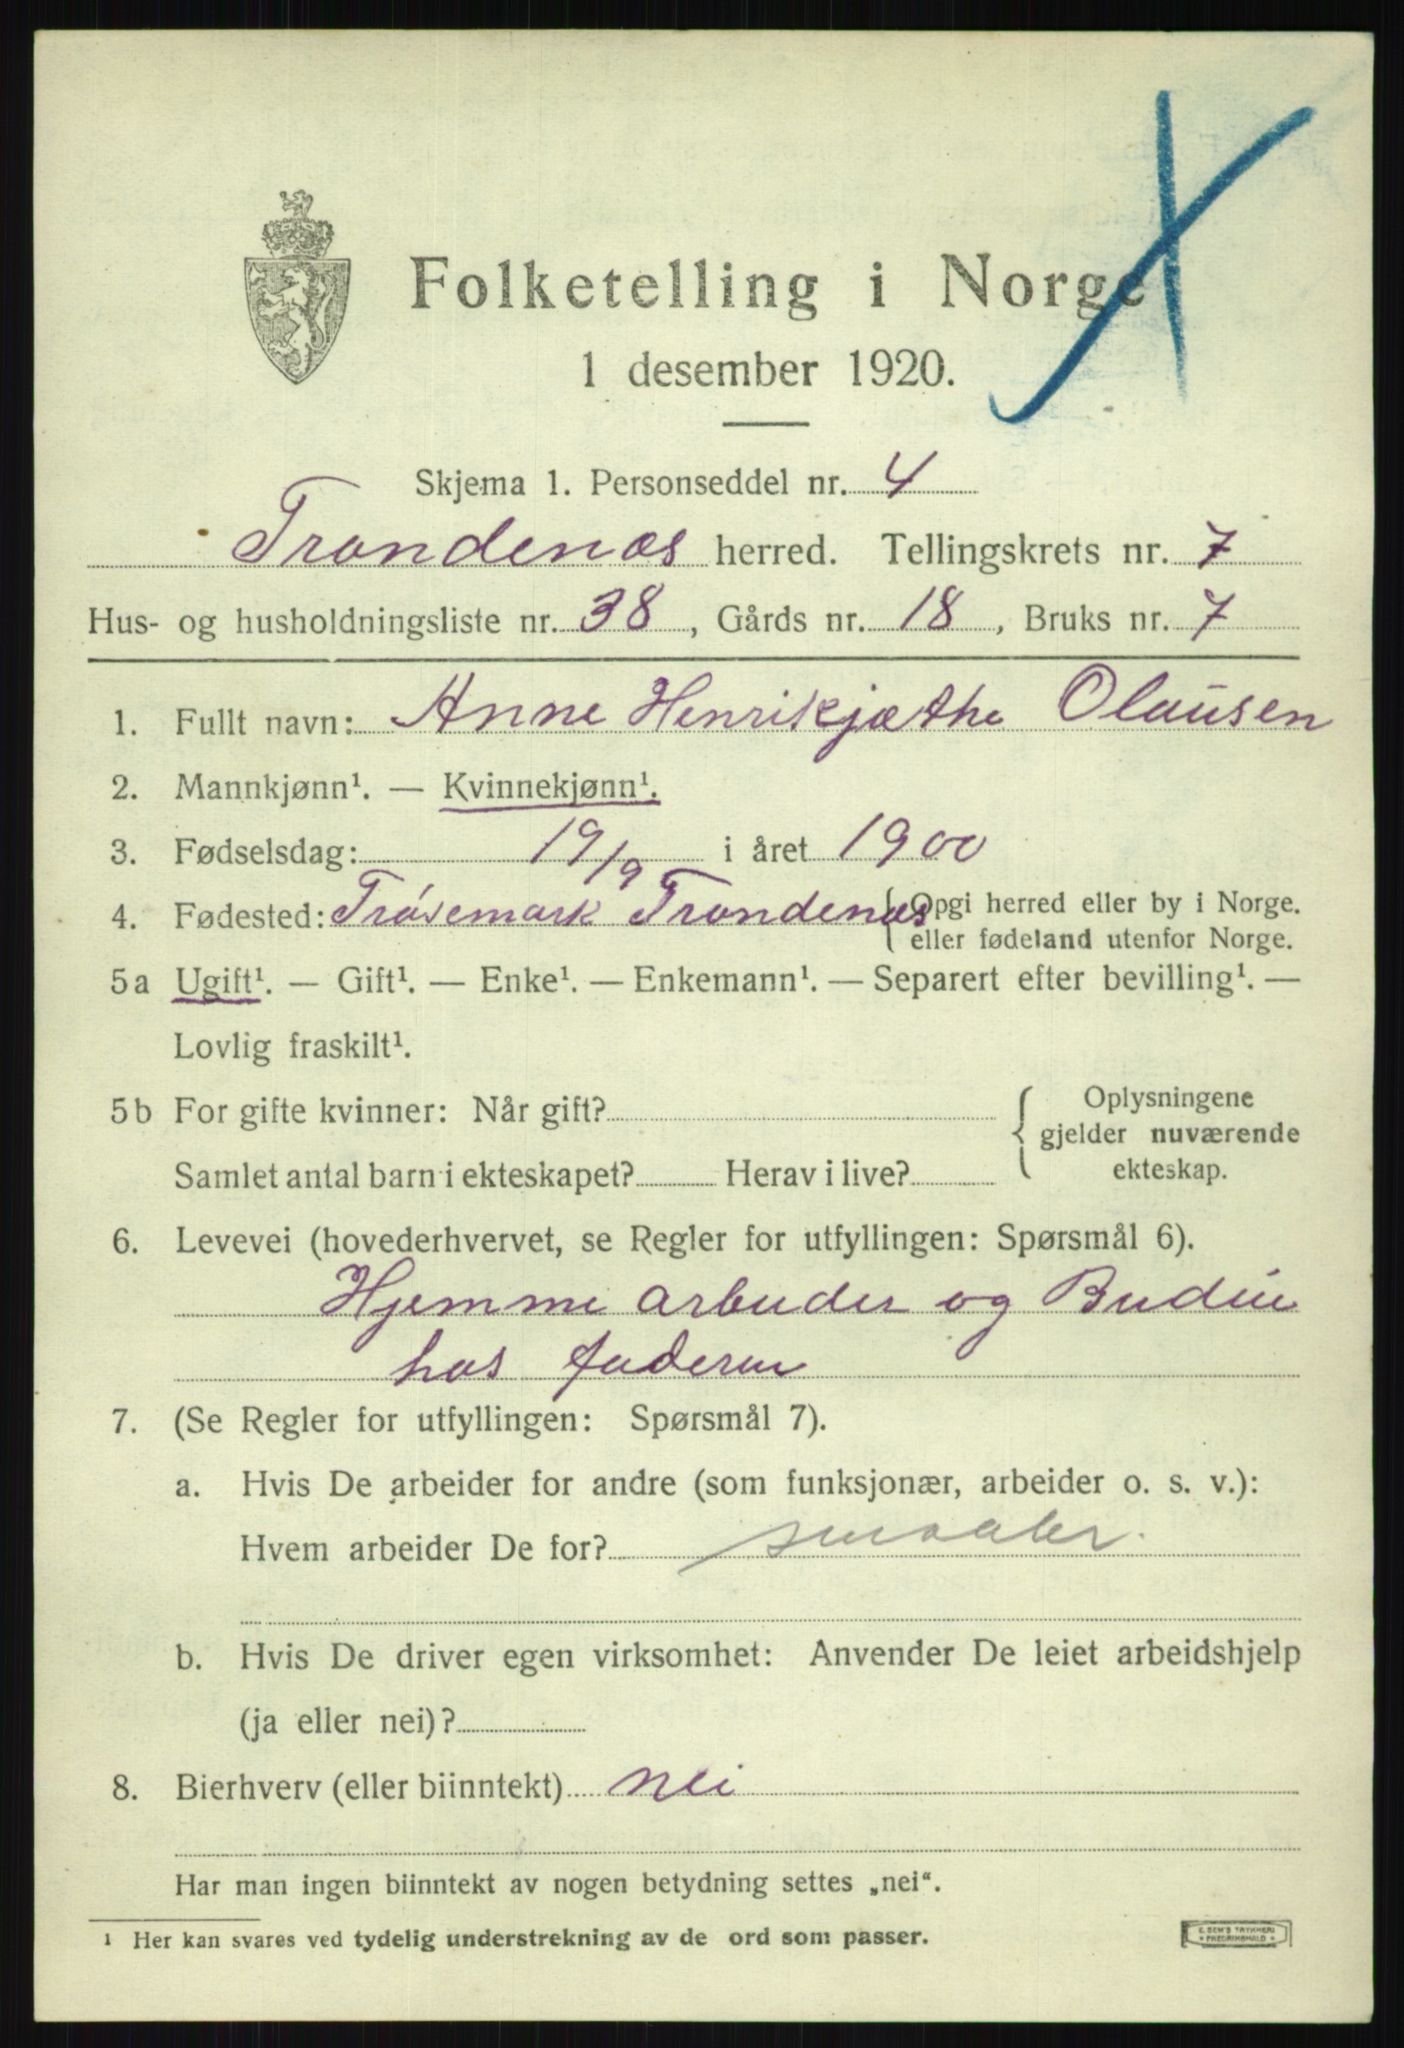 Folketelling i Norge
1 desember 1920.
Skjema 1. Personseddel nr. 4
Trondenæs herred. Tellingskrets nr. 7
Hus- og husholdningsliste nr. 38, Gårds nr. 18, Bruks nr. 7
1. Fullt navn: Anne Henrikjæthe Olausen
2. Mannkjønn¹. — Kvinnekjønn¹.
3. Fødselsdag: 19/9 i året 1900
4. Fødested: Trøsemark Trondenæs { Opgi herred eller by i Norge.
eller fødeland utenfor Norge.
5a Ugift¹. — Gift¹. — Enke¹. — Enkemann¹. — Separert efter bevilling¹. —
Lovlig fraskilt¹.
5b For gifte kvinner: Når gift? { Oplysningene
gjelder nuværende
Samlet antal barn i ekteskapet? Herav i live? ekteskap.
6. Levevei (hovederhvervet, se Regler for utfyllingen: Spørsmål 6).
Hjemme arbuder og Budeie
hos faderen
7. (Se Regler for utfyllingen: Spørsmål 7).
a. Hvis De arbeider for andre (som funksjonær, arbeider o. s. v.):
Hvem arbeider De for?
b. Hvis De driver egen virksomhet: Anvender De leiet arbeidshjelp
(ja eller nei)?
8. Bierhverv (eller biinntekt) nei
Har man ingen biinntekt av nogen betydning settes „nei“.
1 Her kan svares ved tydelig understrekning av de ord som passer.
E. SEM'S TRYKKERI
FREDRIKSHALD